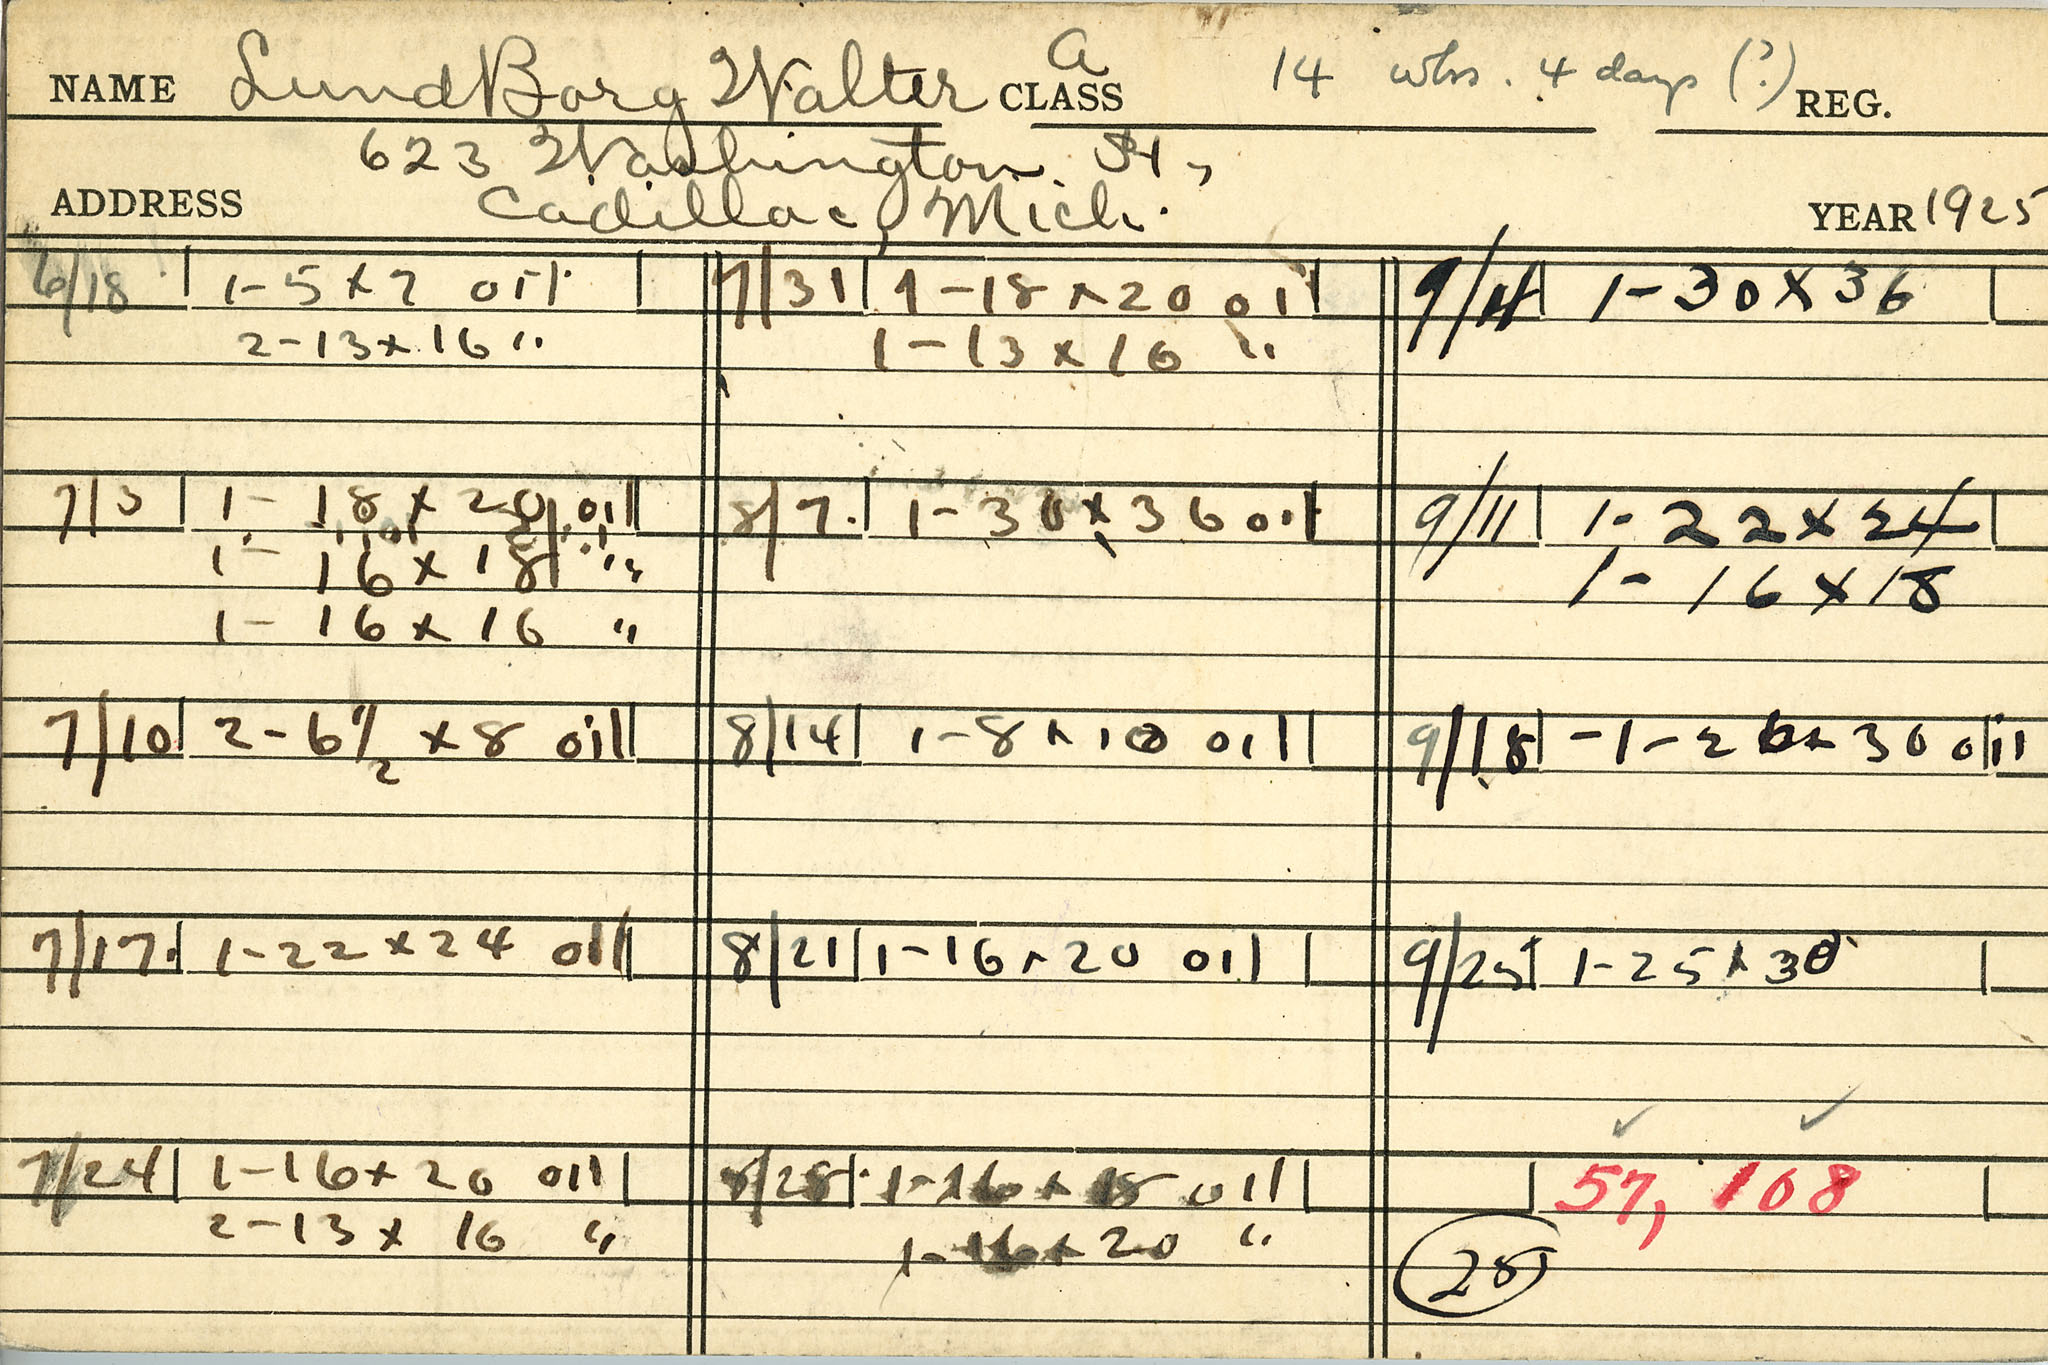 NAME LundBorg Walter CLASS A 14 wks. 4 days (?) REG.
623 Washington St,
ADDRESS Cadillac, Mich. YEAR 1925
6/18 1-5x7 oil
2-13x16 "
7/3 1-18x20 oil
1-16x18 "
1-16x16 "
7/10 2-6 1/2 x8 oil
7/17. 1-22x24 oil
7/24 1-16x20 oil
2-13x16 "
7/31 1-18x20 oil
1-13x16 "
8/7. 1-30x36 oil
8/14 1-8x10 oil
8/21 1-16x20 oil
8/28 1-16x18 oil
1-16x20 "
9/4 1-30x36
9/11 1-22x24
1-16x18
9/18 -1-26x30 oil
9/25 1-25x30
57, 108